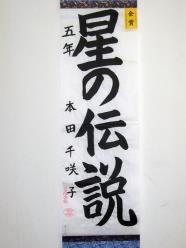 金賞
星の伝説
五年 本田千咲子